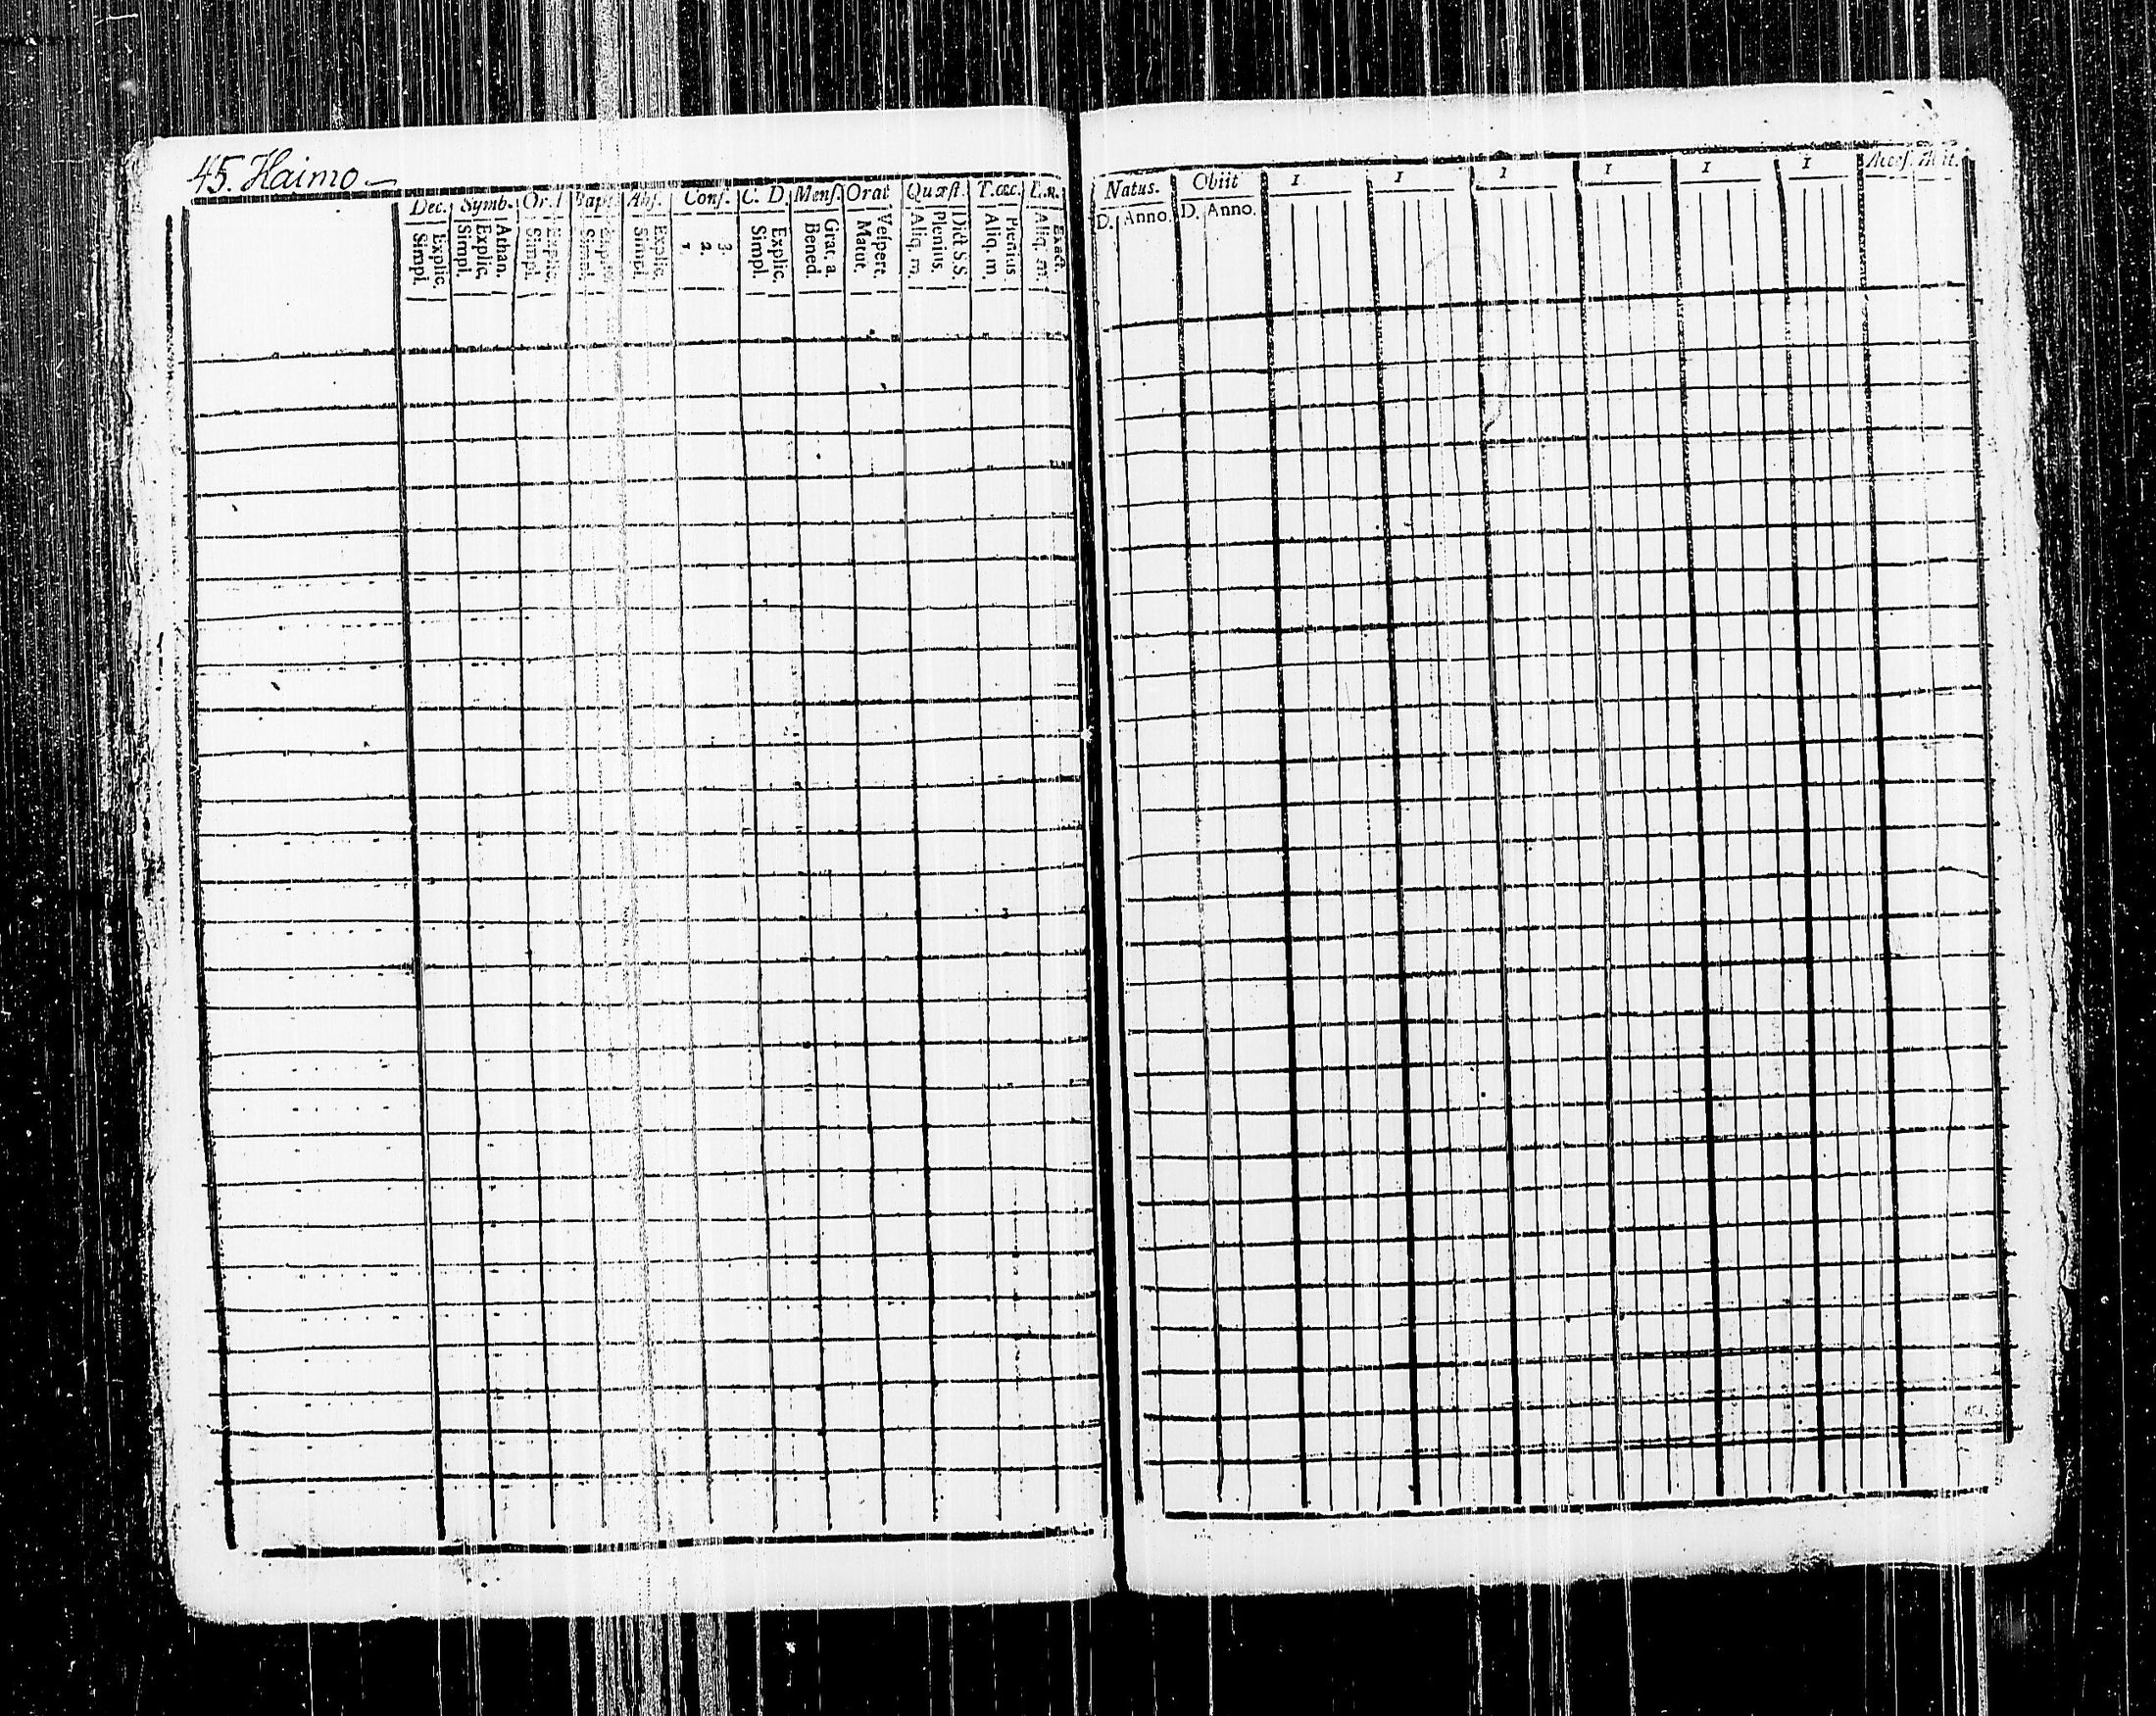 45. Haimo
Dec. Symb. Or. Bapt. Abs. Conf. C. D. Mens. Orat. Quæst. T. œc. L. n.
Simpl. Explic. Simpl. Explic. Athan. Simpl. Explic. Simpl. Explic. Simpl. Explic. 1. 2. 3. Simpl. Explic. Bened. Grat. a. Matut. Vespert. Aliq. m. Plenius. Dict S.S. Aliq. m. Plenius Aliq. m. Exact.
Natus. Obiit 1 1 1 1 1 1 Access. Abit.
D. Anno. D. Anno.